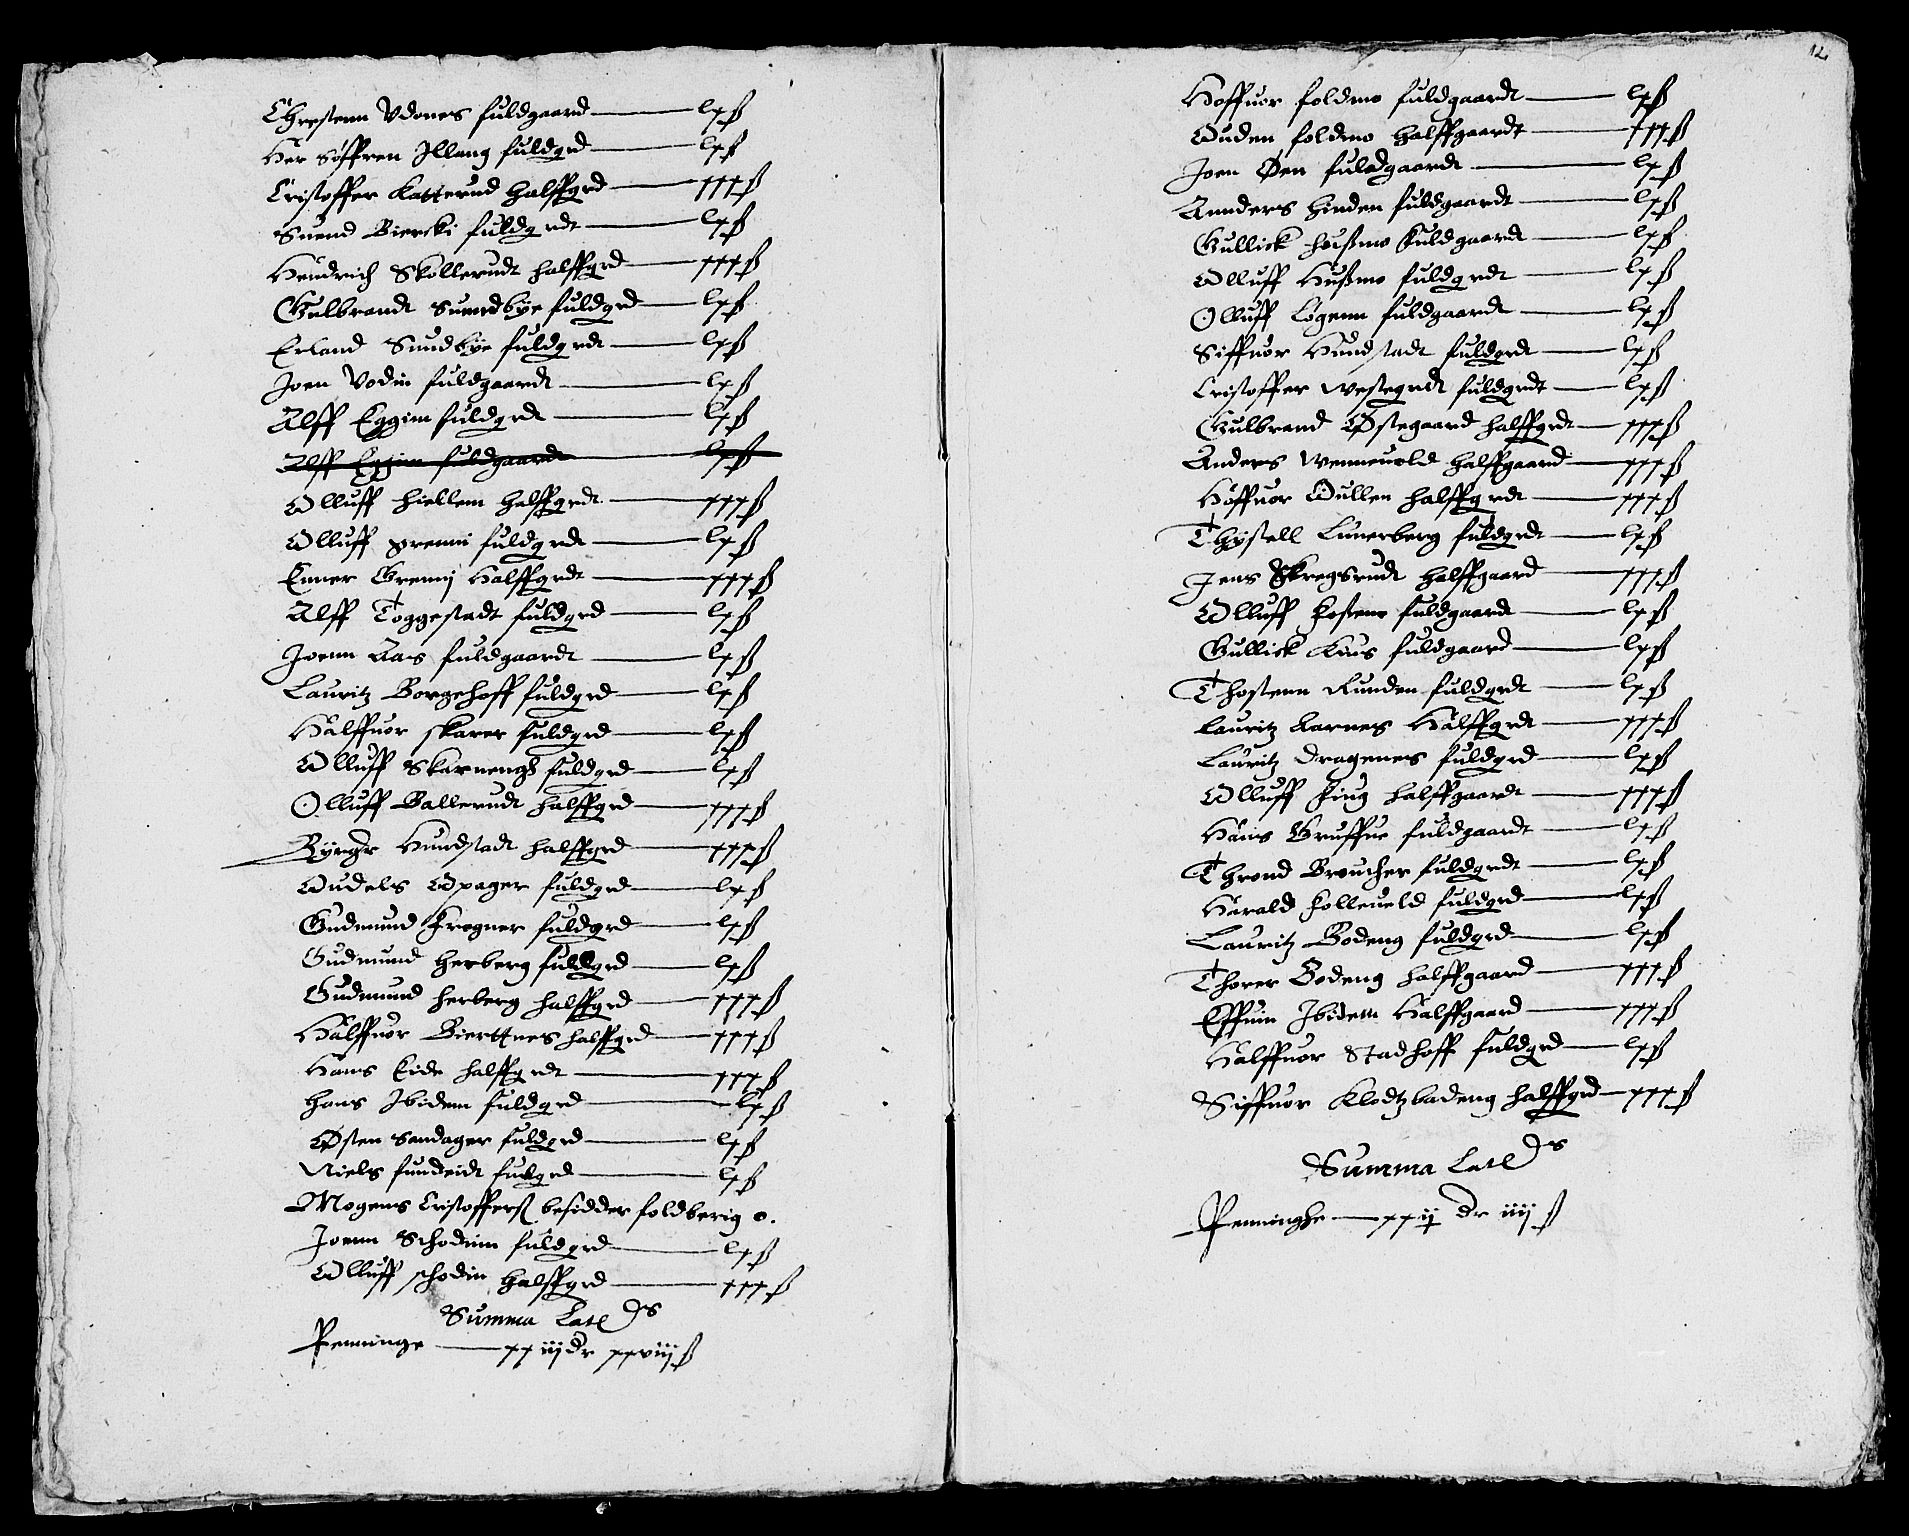 Chrestenn Vdones fuldgaard — lx ß
Her Søffren Illang fuldgrd — lx ß
Cristoffer Katterud halffgrd — xxx ß
Suend Biercki fuldgrdt — lx ß
Hendrich Skollerudt halffgrd — xxx ß
Gulbrandt Sunndbye fuldgrd — lx ß
Erland Sundbye fuldgrdt — lx ß
Joen Vodin fuldgaardt — lx ß
Alff Eggim fuldgrdt — lx ß
Alff Eggim fuldgaardt — lx ß
Olluff Hiellem halffgrdt — xxx ß
Olluff Gremmi fuldgrdt — lx ß
Enner Gremmj halffgrdt — xxx ß
Alff Toggestadt fuldgrd — lx ß
Joenn Aas fuldgaardt — lx ß
Lauritz Borgehoff fuldgrd — lx ß
Halffuor Skarer fuldgrd — lx ß
Olluff Skarnengh fuldgrd — lx ß
Olluff Ballerudt halffgrd — xxx ß
Byrger Hundstadt halffgrd — xxx ß
Oudels Opager fuldgrd — lx ß
Gudmund Frogner fuldgrd — lx ß
Gudmund Herberg fuldgrd — lx ß
Gudmund Herberg halffgrd — xxx ß
Halffuor Bierttnes halffgrd — xxx ß
Hans Eide halffgrdt — xxx ß
Hans Ibidem fuldgrd — lx ß
Østen Sandager fuldgrd — lx ß
Niels fundeidt fuldgrd — lx ß
Mogens Cristofferß besidder foldberig o.
Joenn Schoduin fuldgrd — lx ß
Olluff Schodin halffgrd — xxx ß
Summa Lateris
Penninge — xxiij dr xxviij ß
12
Hoffuor foldmo fuldgaardt — lx ß
Ouden foldmo halffgaardt — xxx ß
Joen Øen fuldgaardt — lx ß
Annders Hinden fuldgaardt — lx ß
Gullick Hußmo fuldgaardt — lx ß
Olluff Hußmo fuldgrdt — lx ß
Olluff Løgenn fuldgaardt — lx ß
Siffuor Hundstadt fuldgrdt — lx ß
Cristoffer Westegrdt fuldgrdt — lx ß
Gulbrand Østegaard halffgrdt — xxx ß
Anders Wenneuold halffgaard — xxx ß
Hoffuor Oullen halffgrdt — xxx ß
Thystell Lunerberg fuldgrdt — lx ß
Jens Skregsrudt halffgaard — xxx ß
Olluff Hostenn fuldgaardt — lx ß
Gullick Kius fuldgaard — lx ß
Thostenn Runden fuldgrdt — lx ß
Lauritz Aarnes halffgrdt — xxx ß
Lauritz Dragenes fuldgrd — lx ß
Olluff Fiug halffgaardt — xxx ß
Hans Gruffue fuldgaardt — lx ß
Thrond Broucher fuldgrdt — lx ß
Harald Holleueld fuldgrd — lx ß
Lauritz Bodeng fuldgrd — lx ß
Thorer Bodeng halffgaard — xxx ß
Effuin Ibidem halffgaard — xxx ß
Halffuor Stadhoff fuldgrd — lx ß
Siffuor Klodtzbadeng halffgrd — xxx ß
Summa Lateris
Penninghe — xxij dr iiij ß